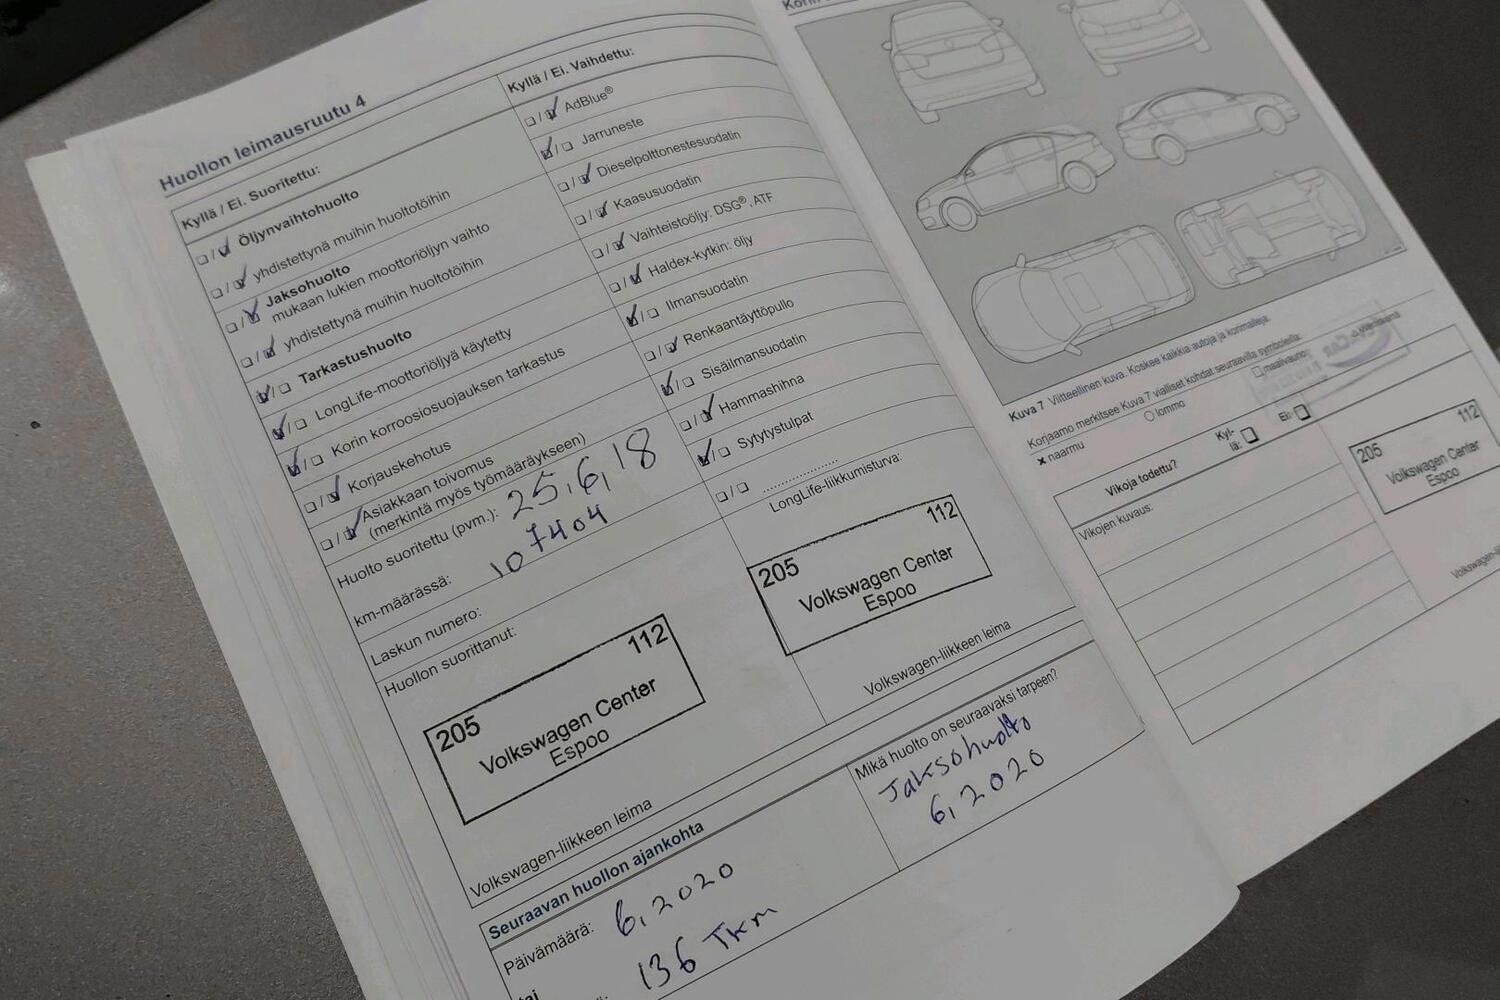 Huollon leimausruutu 4
Kyllä / Ei. Suoritettu:
Öljynvaihtohuolto
yhdistettynä muihin huoltotöihin
Jaksohuolto
mukaan lukien moottoriöljyn vaihto
yhdistettynä muihin huoltotöihin
Tarkastushuolto
LongLife-moottoriöljyä käytetty
Korin korroosiosuojauksen tarkastus
Korjauskehotus
Asiakkaan toivomus
(merkintä myös työmääräykseen)
Huolto suoritettu (pvm.): 25.6.18
km-määrässä: 107404
Laskun numero:
Huollon suorittanut:
205 112
Volkswagen Center
Espoo
Volkswagen-liikkeen leima
Kyllä / Ei. Vaihdettu:
AdBlue®
Jarruneste
Dieselpolttonestesuodatin
Kaasusuodatin
Vaihteistoöljy: DSG®, ATF
Haldex-kytkin: öljy
Ilmansuodatin
Renkaantäyttöpullo
Sisäilmansuodatin
Hammashihna
Sytytystulpat
LongLife-liikkumisturva:
205 112
Volkswagen Center
Espoo
Volkswagen-liikkeen leima
Seuraavan huollon ajankohta
Päivämäärä: 6.2020
tai
136 Tkm
Mikä huolto on seuraavaksi tarpeen?
Jaksohuolto
6.2020
Kuva 7 Viitteellinen kuva. Koskee kaikkia autoja ja korimalleja.
Korjaamo merkitsee Kuva 7 vialliset kohdat seuraavilla symboleilla:
x naarmu ○ lommo □ maalivaurio
Vikoja todettu? Kyl-
lä: □ Ei: □
Vikojen kuvaus:
205 112
Volkswagen Center
Espoo